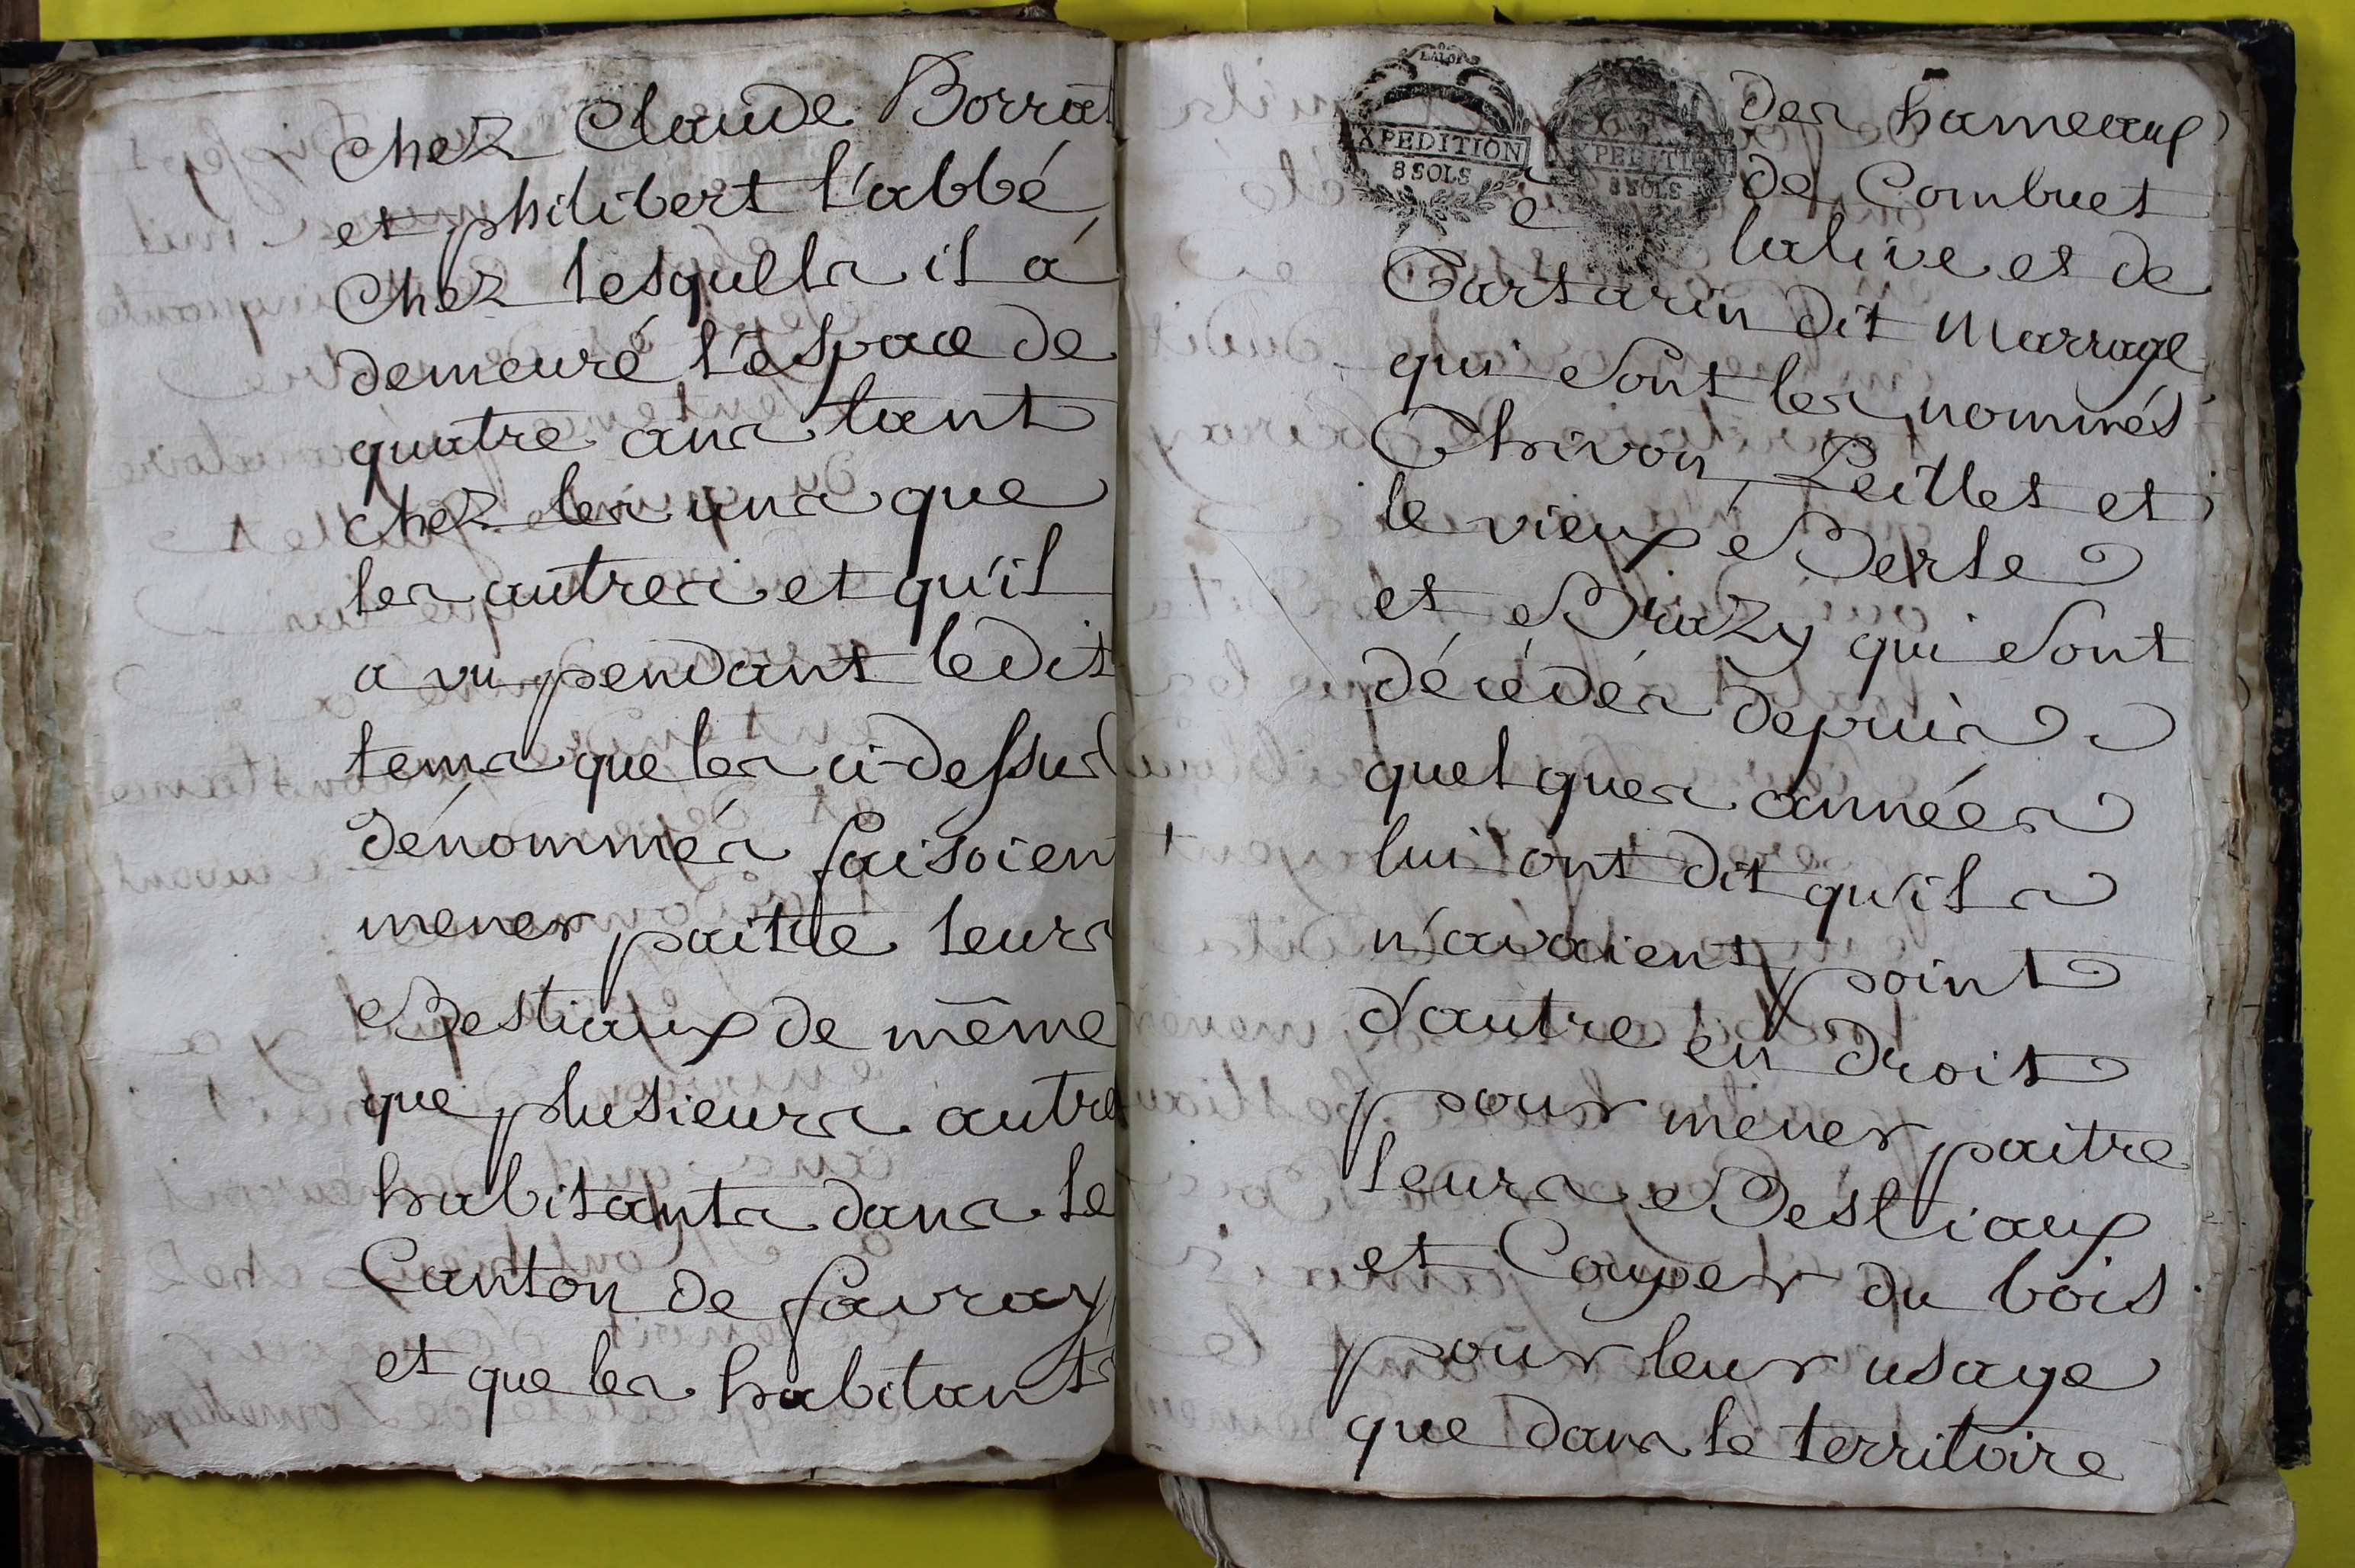 chez Claude Borrat
et philibert l'abbé
chez lesquells il á
demeuré l'espace de
quatre ans tant
chez les uns que
les autres et qu'il
a vu pendant ledit
tems que les ci-dessus
dénommés faisoient
mener paitre leurs
Bestiaux de même
que plusieurs autres
habitants dans le
Canton de favray
et que les habitants
XPEDITION
8 SOLS
8 SOLS
des hameaux
de Combret
lalive et de
Tartarin dit Marrage
qui sont les nommés
Thivon, Peillet et
le vieux Berle
et Brazy qui sont
décédés depuis
quelques années
lui ont dit qu'ils
n'avaient point
d'autre en droit
pour mener paitre
leurs Bestiaux
et Couper du bois
pour leur usage
que dans le territoire